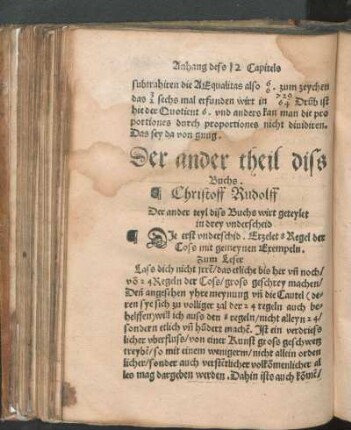 Anhang deß 12 Capitels
subtrahiren die AEqualitas also 6/6. zum zeychen
das 3/2 sechs mal erfunden wirt in 729/64 Drüb ist
hie der Quotient 6. vnd anders kan man die pro
portiones durch proportiones nicht diuidiren.
Das sey da von gnug.
Der ander theil diss
Buchs.
¶ Christoff Rudolff
Der ander teyl diss Buchs wirt geteylet
in drey vnderscheid
¶ Die erst vnderscheid. Erzelet 8 Regel der
Coss mit gemeynen Exempeln.
Zum Leser
Lass dich nicht jrrē/ das etliche bis her vñ noch/
vō 24 Regeln der Coss/ gross geschrey machen/
Deñ angesehen yhre meynung vñ die Cautel (de
ren sye sich zu volliger zal der 24 regeln auch be-
helffen) will ich auss den 8 regeln/ nicht alleyn 24/
sondern etlich vñ hūdert machē. Ist ein verdriess
licher vberfluss/ von einer Kunst gross geschwetz
treybē/ so mit einem wenigerm/ nicht allein orden
licher/ sonder auch verstētlicher volkōmenlicher al
les mag dargeben werden. Dahin ists auch kōmē/